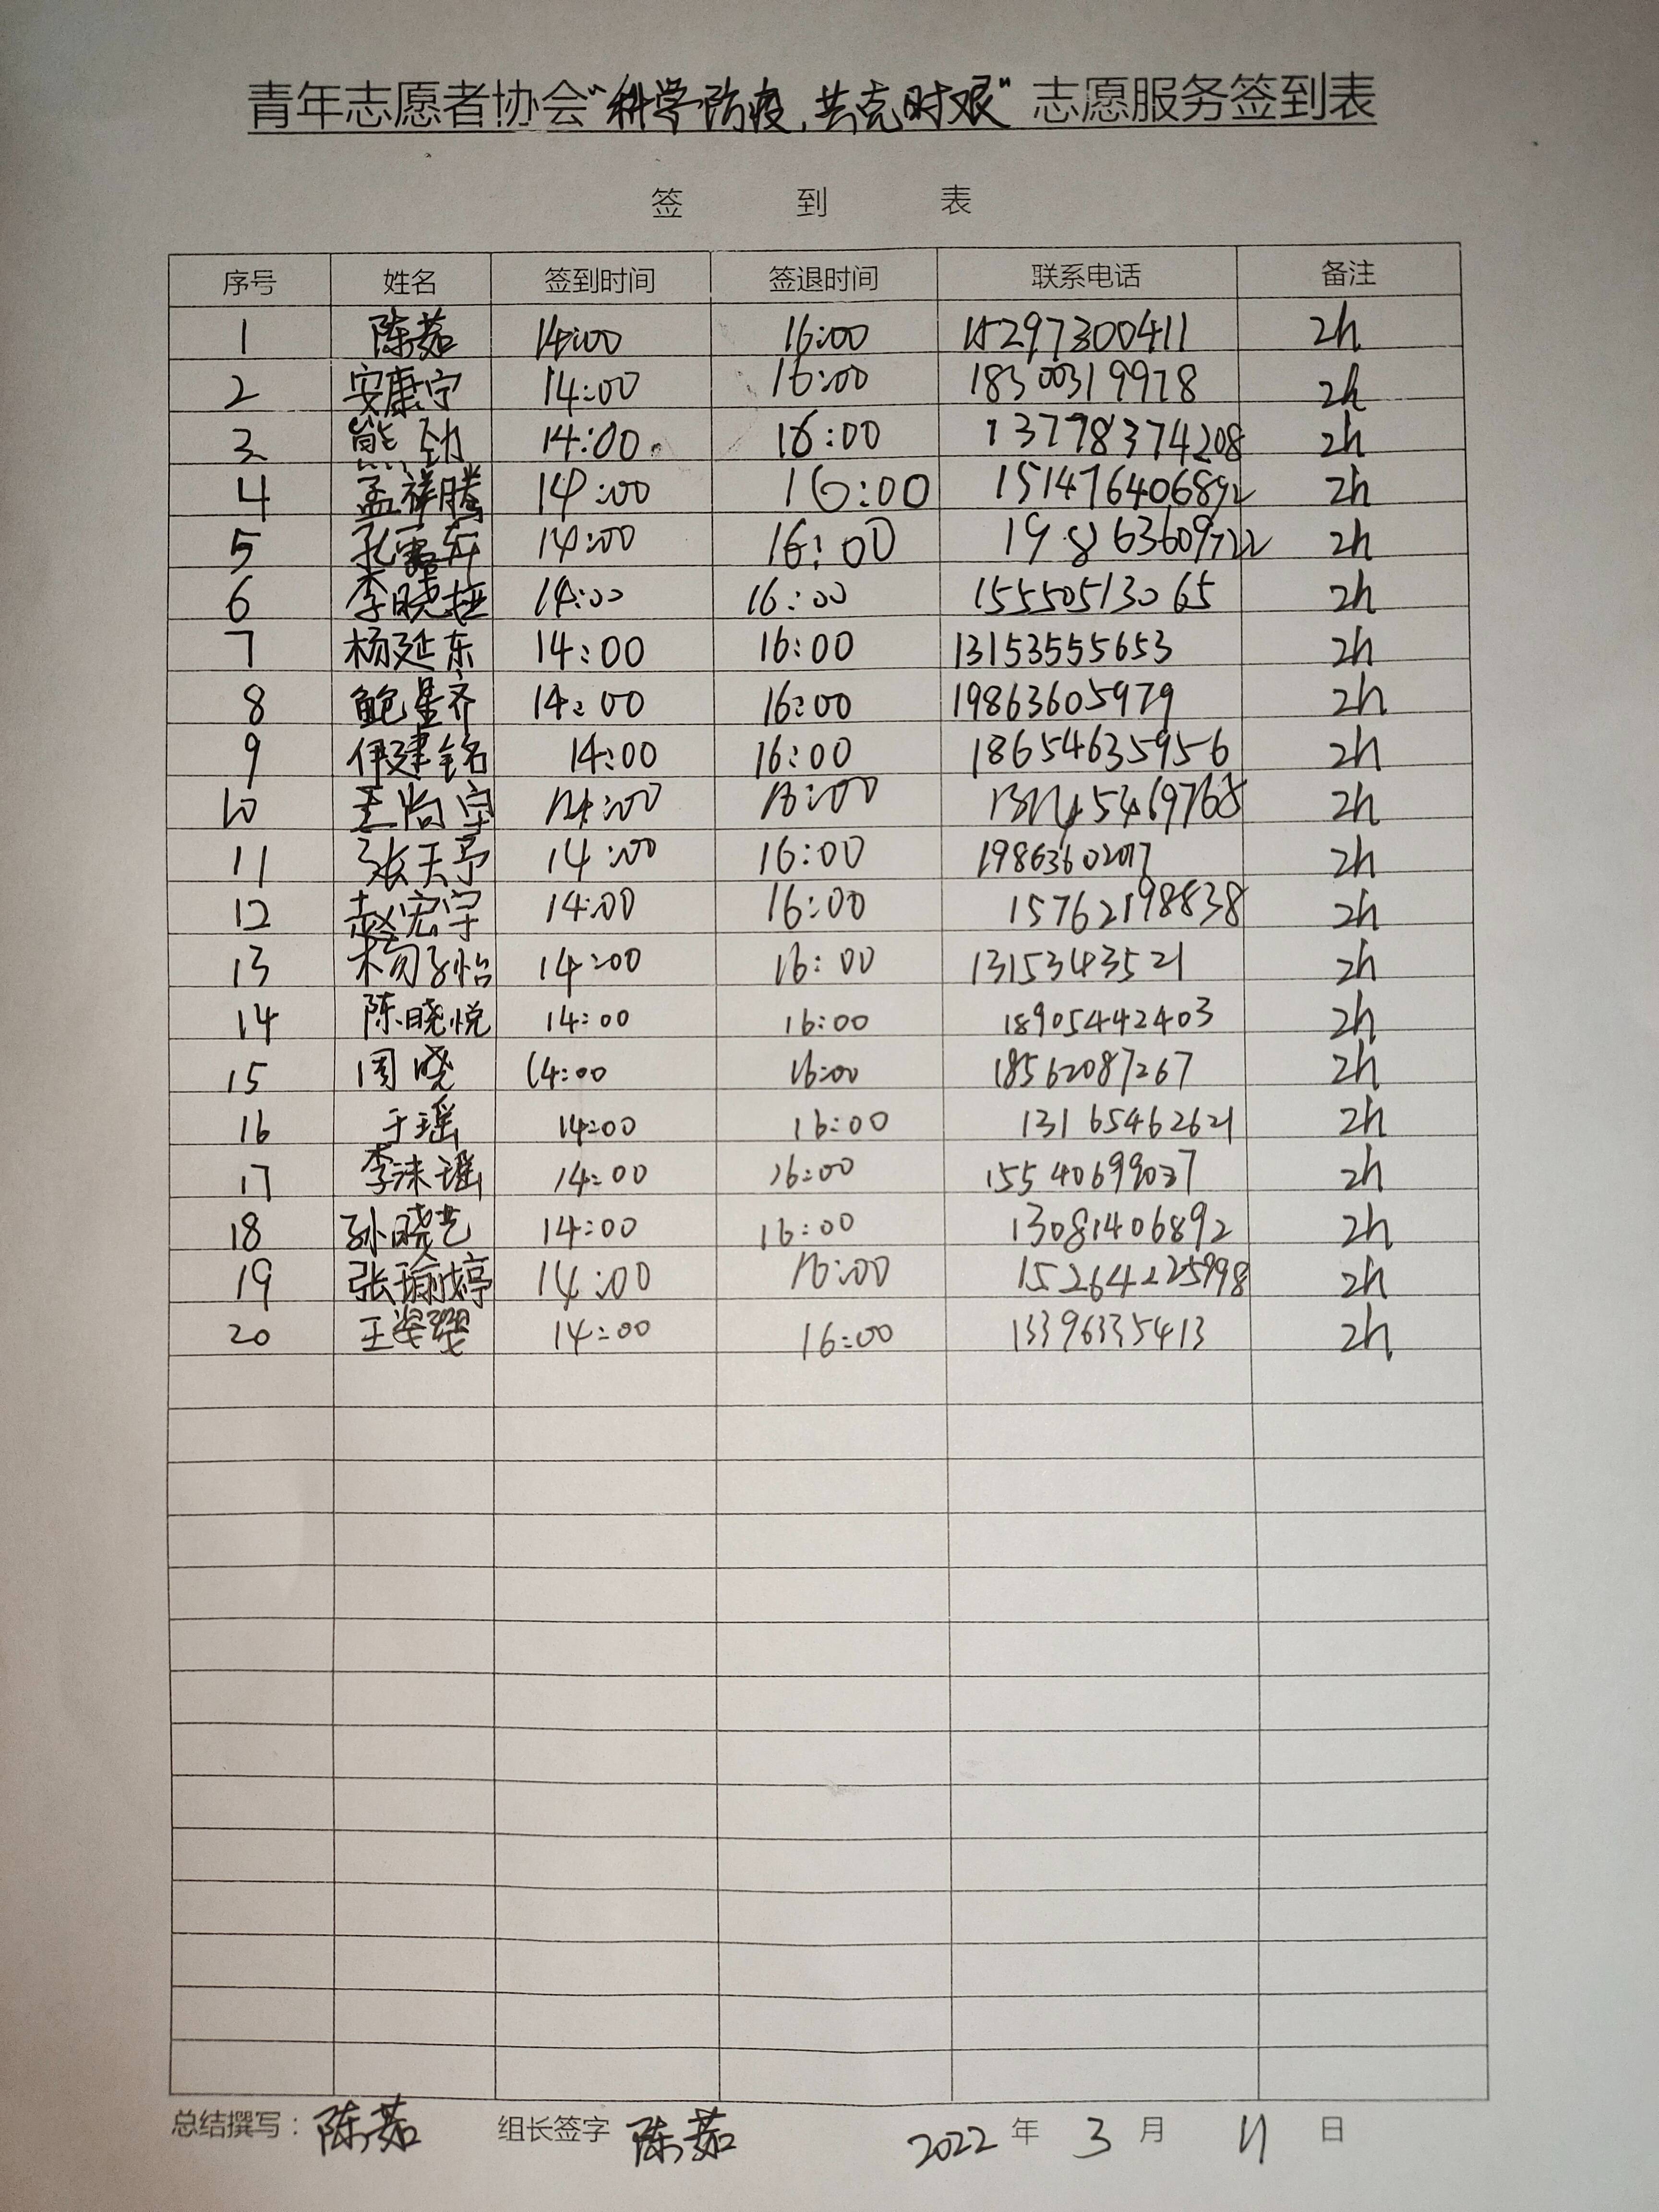 青年志愿者协会"科学防疫,共克时艰"志愿服务签到表
签 到 表
序号 姓名 签到时间 签退时间 联系电话 备注
1 陈茹 14:00 16:00 15297300411 2h
2 安康宁 14:00 16:00 18300319978 2h
3 熊劲 14:00 16:00 13798374208 2h
4 孟祥腾 14:00 16:00 151476406892 2h
5 孔 14:00 16:00 19863609722 2h
6 李晓 14:00 16:00 15550513065 2h
7 杨延东 14:00 16:00 13153555653 2h
8 鲍星齐 14:00 16:00 19863605979 2h
9 伊建铭 14:00 16:00 18654635956 2h
10 王怡 14:00 16:00 2h
11 张天予 14:00 16:00 2h
12 赵宏宇 14:00 16:00 15762198838 2h
13 杨子怡 14:00 16:00 1315343521 2h
14 陈晓悦 14:00 16:00 18905442403 2h
15 周晓 14:00 16:00 18562087267 2h
16 于瑶 14:00 16:00 13165462621 2h
17 李沫瑶 14:00 16:00 15540699037 2h
18 孙晓艺 14:00 16:00 13081406892 2h
19 张瑜婷 14:00 16:00 15264225998 2h
20 王 14:00 16:00 13396335413 2h
总结撰写:陈茹 组长签字 陈茹 2022 年 3 月 11 日